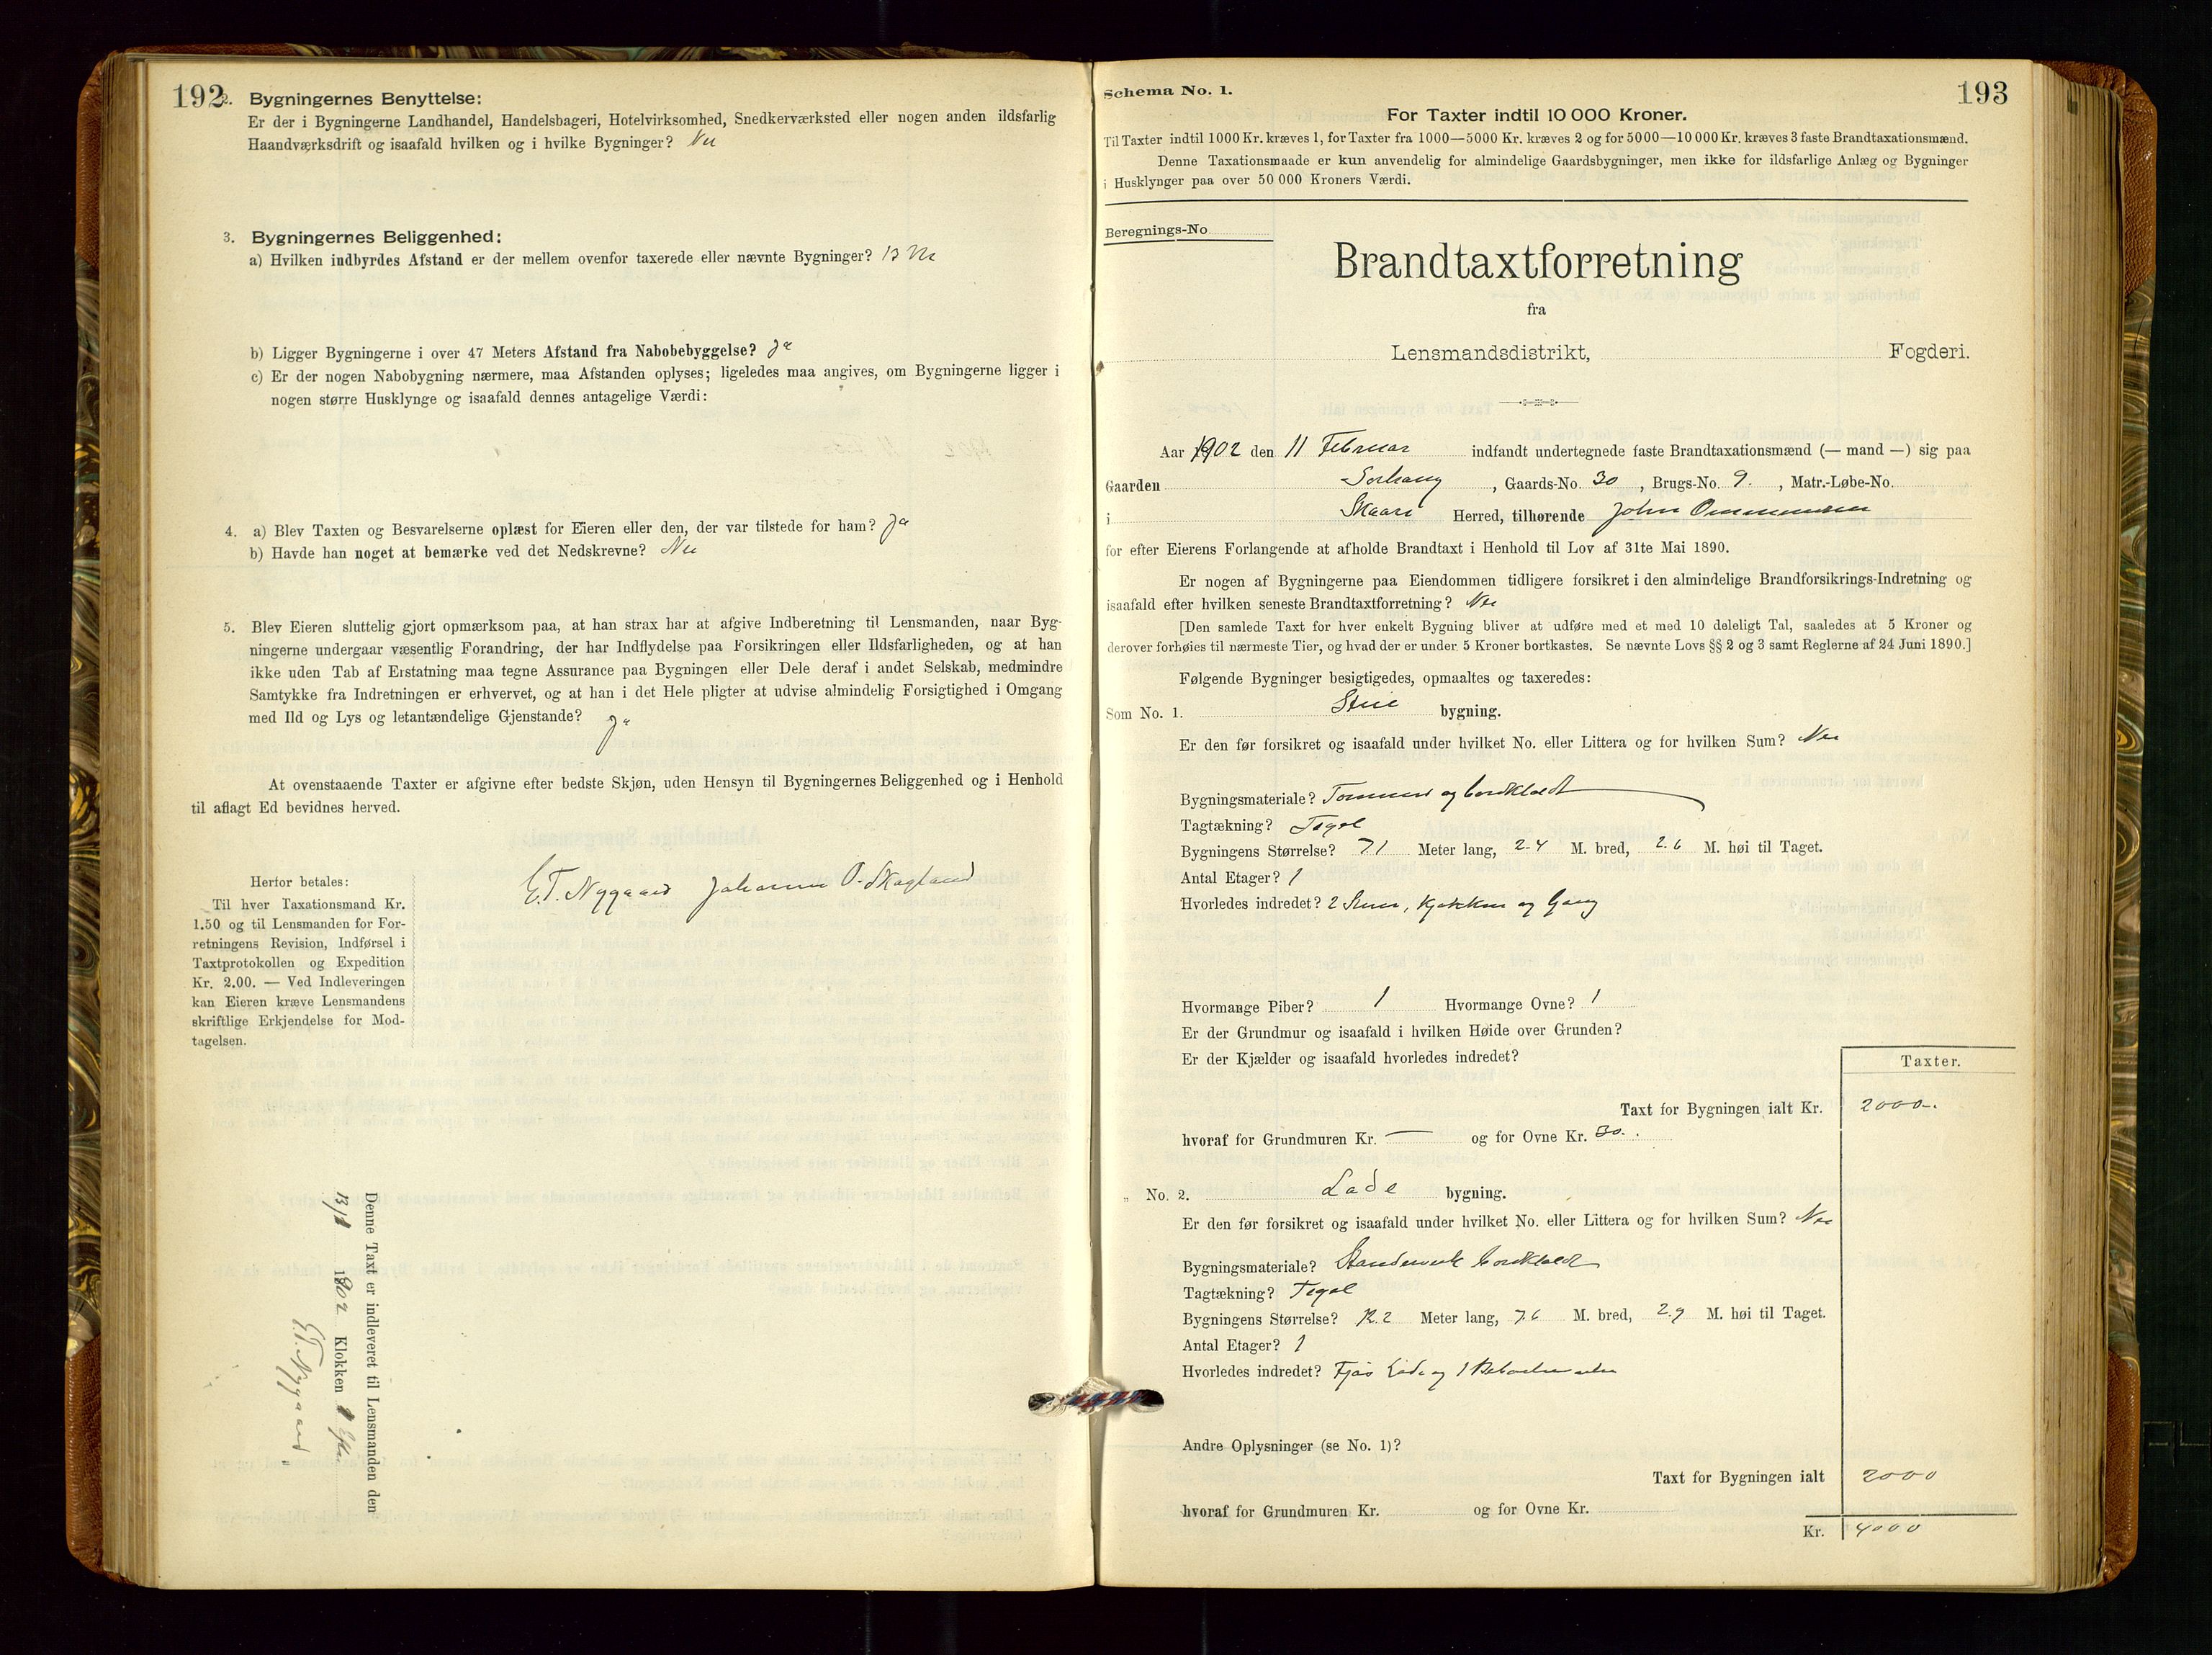 192
2. Bygningernes Benyttelse:
Er der i Bygningerne Landhandel, Handelsbageri, Hotelvirksomhed, Snedkerværksted eller nogen anden ildsfarlig
Haandværksdrift og isaafald hvilken og i hvilke Bygninger? Nei
3. Bygningernes Beliggenhed:
a) Hvilken indbyrdes Afstand er der mellem ovenfor taxerede eller nævnte Bygninger? 13 M
b) Ligger Bygningerne i over 47 Meters Afstand fra Nabobebyggelse? Ja
c) Er der nogen Nabobygning nærmere, maa Afstanden oplyses; ligeledes maa angives, om Bygningerne ligger i
nogen større Husklynge og isaafald dennes antagelige Værdi:
4. a) Blev Taxten og Besvarelserne oplæst for Eieren eller den, der var tilstede for ham? Ja
b) Havde han noget at bemærke ved det Nedskrevne? Nei
5. Blev Eieren sluttelig gjort opmærksom paa, at han strax har at afgive Indberetning til Lensmanden, naar Byg-
ningerne undergaar væsentlig Forandring, der har Indflydelse paa Forsikringen eller Ildsfarligheden, og at han
ikke uden Tab af Erstatning maa tegne Assurance paa Bygningen eller Dele deraf i andet Selskab, medmindre
Samtykke fra Indretningen er erhvervet, og at han i det Hele pligter at udvise almindelig Forsigtighed i Omgang
med Ild og Lys og letantændelige Gjenstande? Ja
At ovenstaaende Taxter er afgivne efter bedste Skjøn, uden Hensyn til Bygningernes Beliggenhed og i Henhold
til aflagt Ed bevidnes herved.
E.T. Nygaard Johannes O. Skogland
Herfor betales:
Til hver Taxationsmand Kr.
1.50 og til Lensmanden for For-
retningens Revision, Indførsel i
Taxtprotokollen og Expedition
Kr. 2.00. — Ved Indleveringen
kan Eieren kræve Lensmandens
skriftlige Erkjendelse for Mod-
tagelsen.
Denne Taxt er indleveret til Lensmanden den
1902 Klokken
E.T. Nygaard
Schema No. 1.
193
For Taxter indtil 10 000 Kroner.
Til Taxter indtil 1000 Kr. kræves 1, for Taxter fra 1000—5000 Kr. kræves 2 og for 5000—10 000 Kr. kræves 3 faste Brandtaxationsmænd.
Denne Taxationsmaade er kun anvendelig for almindelige Gaardsbygninger, men ikke for ildsfarlige Anlæg og Bygninger
i Husklynger paa over 50 000 Kroners Værdi.
Beregnings-No
Brandtaxtforretning
fra
Lensmandsdistrikt, Fogderi.
Aar 1902 den 11 Februar indfandt undertegnede faste Brandtaxationsmænd (— mand —) sig paa
Gaarden Sorhaug, Gaards-No. 30, Brugs-No. 9., Matr.-Løbe-No.
i Skaare Herred, tilhørende John Ommundsen
for efter Eierens Forlangende at afholde Brandtaxt i Henhold til Lov af 31te Mai 1890.
Er nogen af Bygningerne paa Eiendommen tidligere forsikret i den almindelige Brandforsikrings-Indretning og
isaafald efter hvilken seneste Brandtaxtforretning? Nei
[Den samlede Taxt for hver enkelt Bygning bliver at udføre med et med 10 deleligt Tal, saaledes at 5 Kroner og
derover forhøies til nærmeste Tier, og hvad der er under 5 Kroner bortkastes. Se nævnte Lovs §§ 2 og 3 samt Reglerne af 24 Juni 1890.]
Følgende Bygninger besigtigedes, opmaaltes og taxeredes:
Som No. 1. Stue bygning.
Er den før forsikret og isaafald under hvilket No. eller Littera og for hvilken Sum? Nei
Bygningsmateriale? Tømmer og bordklædt
Tagtækning? Tegel
Bygningens Størrelse? 7.1 Meter lang, 2.4 M. bred, 2.6 M. høi til Taget.
Antal Etager? 1
Hvorledes indredet? 2 Stuer, Kjøkken og Gang
Hvormange Piber? 1 Hvormange Ovne? 1
Er der Grundmur og isaafald i hvilken Høide over Grunden?
Er der Kjælder og isaafald hvorledes indredet?
Taxter.
Taxt for Bygningen ialt Kr. 2000.
hvoraf for Grundmuren Kr. — og for Ovne Kr. 30.
„ No. 2. Lade bygning.
Er den før forsikret og isaafald under hvilket No. eller Littera og for hvilken Sum? Nei
Bygningsmateriale? Standerverk bordklædt
Tagtækning? Tegel
Bygningens Størrelse? 12.2 Meter lang, 7.6 M. bred, 2.9 M. høi til Taget.
Antal Etager? 1
Hvorledes indredet? Fjøs Lade og 1
Andre Oplysninger (se No. 1)?
Taxt for Bygningen ialt 2000
hvoraf for Grundmuren Kr. og for Ovne Kr.
Kr. 4000